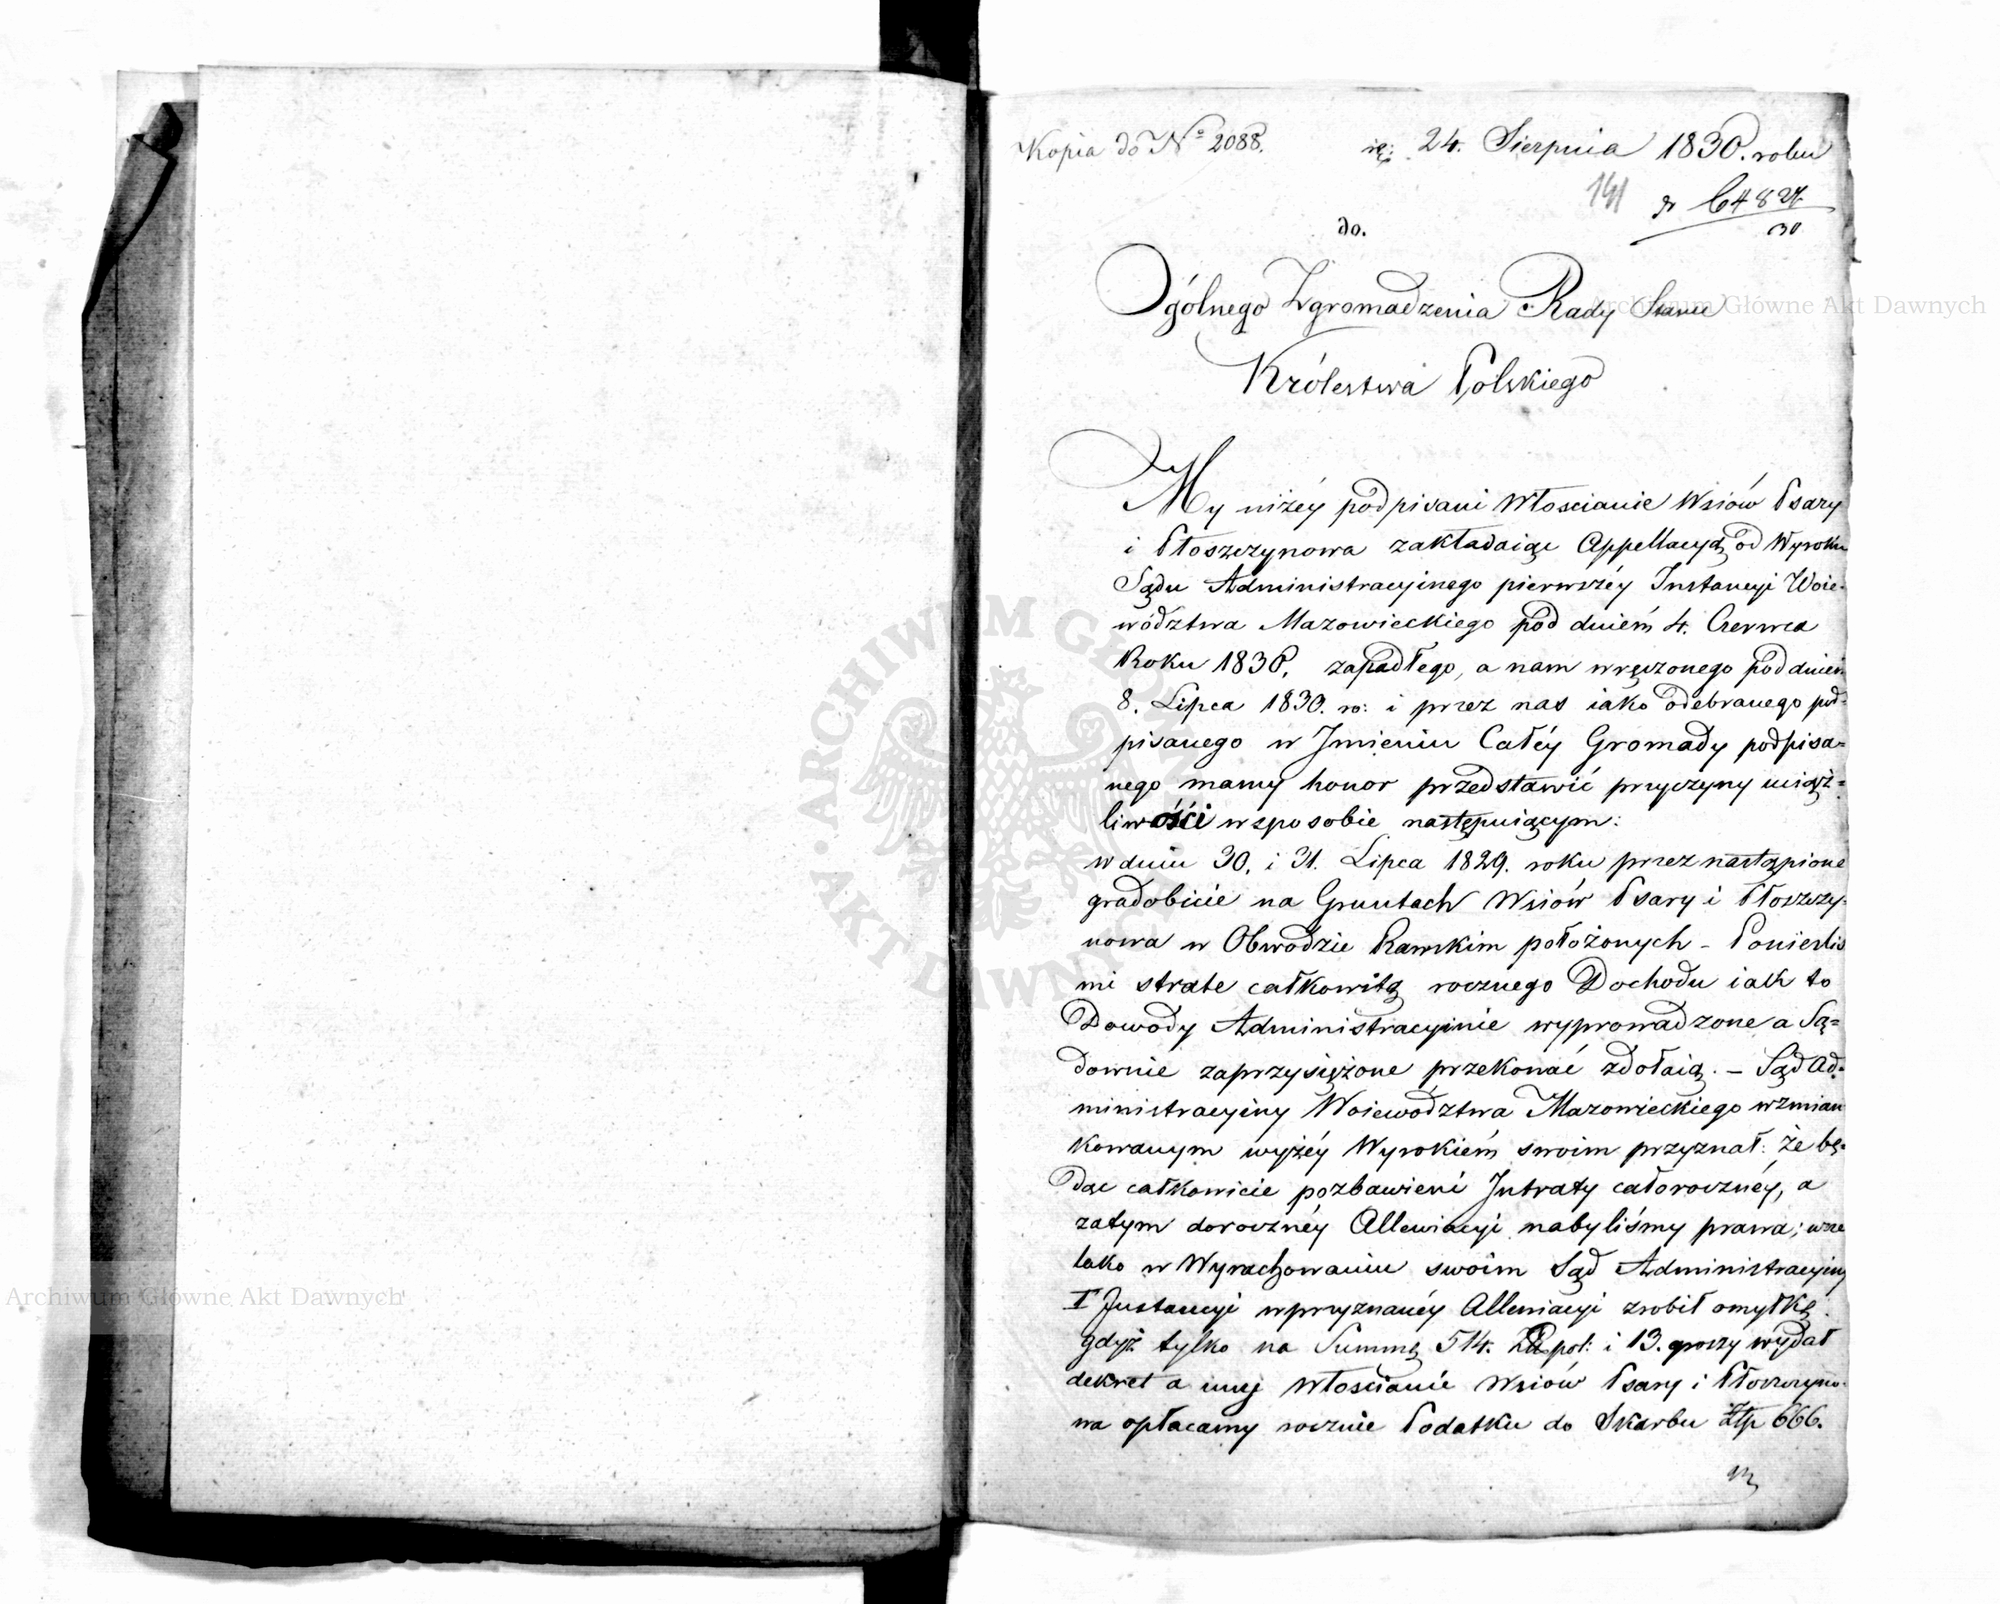 Kopia do Nº 2088.
24. Sierpnia 1830. roku
141
6482
30
do.
Ogólnego Zgromadzenia Rady Stanu
Królestwa Polskiego
My niżéy podpisani Włoscianie Wsiów Psary
i Płoszczynowa zakładaiąc Appellacyą od Wyroku
Sądu Administracyinego pierwszéy Instancyi Woie-
wództwa Mazowieckiego pod dniem 4. Czerwca
Roku 1830. zapadłego, a nam wręczonego pod dniem
8. Lipca 1830. ro: i przez nas iako odebranego pod-
pisanego w Jmieniu Całéy Gromady podpisa=
nego mamy honor przedstawić przyczyny uciąż=
liwości w sposobie następuiącym:
w dniu 30. i 31. Lipca 1829. roku przez nastąpione
gradobicie na Gruntach Wsiów Psary i Płoszczy-
nowa w Obwodzie Rawskim położonych - Ponieśliś
mi strate całkowitą rocznego Dochodu iak to
Dowody Administracyinie wyprowadzone a Są=
downie zaprzysiężone przekonać zdołaią. - Sąd Ad=
ministracyiny Woiewództwa Mazowieckiego wzmian
kowanym wyżéy Wyrokiem swoim przyznał: że bę-
dąc całkowicie pozbawieni Jntraty całorocznéy, a
zatym dorocznéy Allewiacyi nabyliśmy prawa; wsze
lako w Wyrachowaniu swoim Sąd Administracyiny
I Jnstancyi w przyznanéy Allewiacyi zrobił omyłkę
gdyż tylko na Summę 514. Zł pol: i 13. groszy wydał
dekret a my Włoscianie Wsiów Psary i Płoszczyno-
wa opłacamy rocznie Podatku do Skarbu Złp 666.
Archiwum Główne Akt Dawnych
Archiwum Główne Akt Dawnych
ARCHIWUM GŁÓWNE AKT DAWNYCH